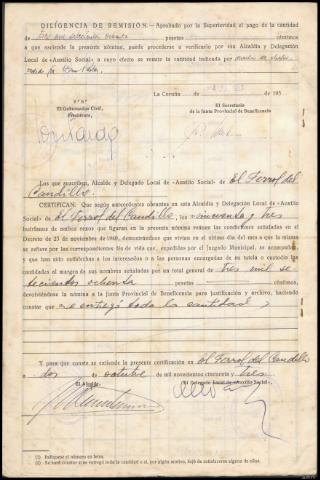 DILIGENCIA DE REMISIÓN.—Aprobado por la Superioridad el pago de la cantidad
de tres mil setecientas ochenta pesetas céntimos
a que asciende la presente nómina, puede procederse a verificarlo por esa Alcaldía y Delegación
Local de «Auxilio Social» a cuyo efecto se remite la cantidad indicada por
La Coruña de de 195
V.º B.º
El Gobernador Civil, El Secretario
Presidente, de la Junta Provincial de Beneficencia
Los que suscriben, Alcalde y Delegado Local de «Auxilio Social» de El Ferrol del
Caudillo.
CERTIFICAN: Que según antecedentes obrantes en esta Alcaldía y Delegación Local de «Auxilio
Social» de El Ferrol del Caudillo, los cincuenta y tres
huérfanos de ambos sexos que figuran en la presente nómina reúnen las condiciones señaladas en el
Decreto de 23 de noviembre de 1940, demostrándose que vivían en el último día del mes a que la misma
se refiere por las correspondientes fés de vida que, expedidas por el Juzgado Municipal, se acompañan
y que han sido satisfechas a los interesados o a las personas encargadas de su tutela o custodia las
cantidades al margen de sus nombres estampadas por un total general de tres mil se
tecientos ochenta pesetas céntimos,
devolviéndose la nómina a la Junta Provincial de Beneficencia para justificación y archivo, haciendo
constar que se entregó toda la cantidad
Y para que conste se extiende la presente certificación en El Ferrol del Caudillo
a dos de octubre de mil novecientos cincuenta y tres
El Alcalde, El Delegado Local de «Auxilio Social»,
(1) Indíquese el número en letra.
(2) Se hará constar si se entregó toda la cantidad o si, por algún motivo, dejó de satisfacerse alguna de ellas.